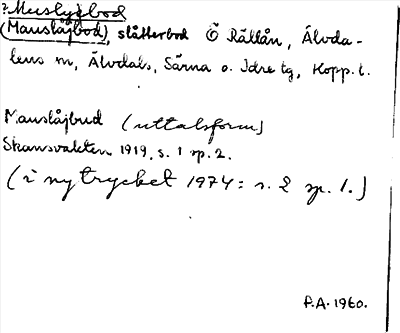 ? Muslyebod
(Mauslåjbod), slåtterbod Ö Rällån, Älvda-
lens sn, Älvdals, Särna o. Idre tg, Kopp. l.
Mauslåjbud (uttalsform)
Skansvakten 1919, s. 1 sp. 2.
(i nytrycket 1974: s. 2 sp. 1.)
P.A. 1960.